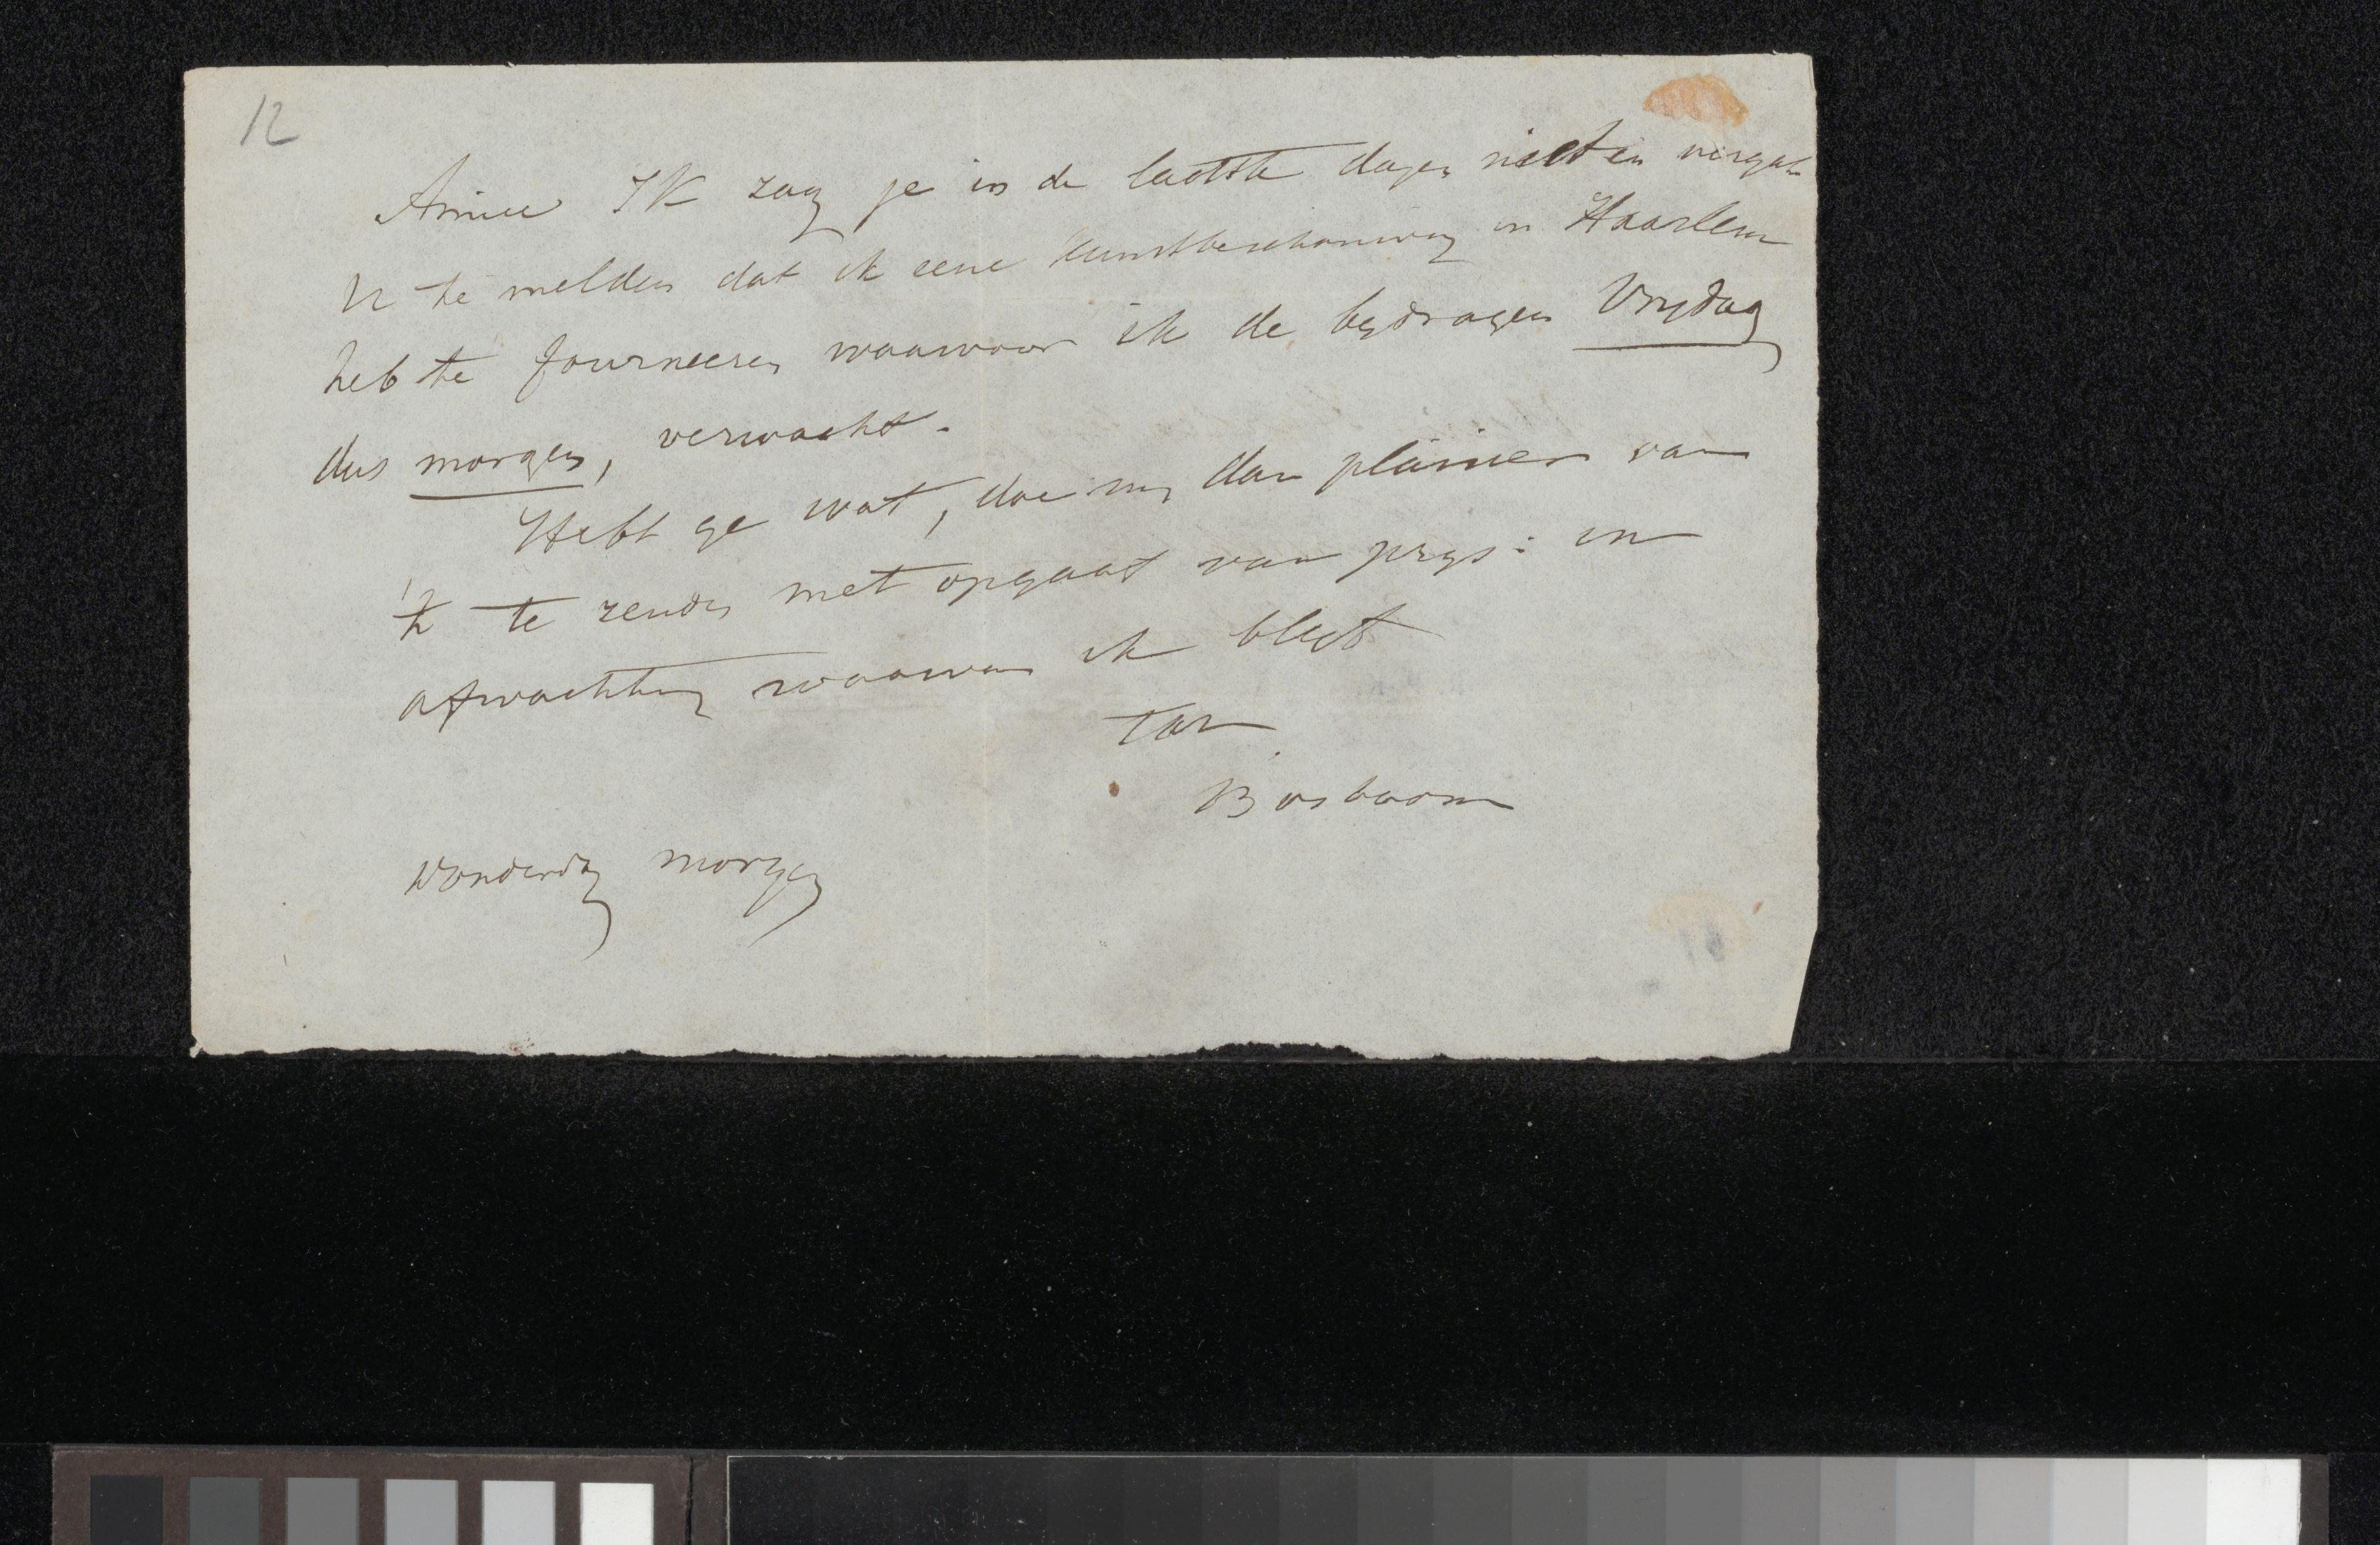 12
Amice IK zag je in de laatste dagen niet en vergat
U te melden dat ik eene kunstbeschouwing in Haarlem
heb te fourneeren waarvoor ik de bydragen Vrydag
dus morgen, verwacht.
Hebt ge wat, doe my dan plaisier van
't te zenden met opgaaf van prys: in
afwachting waarvan ik blyf
tav
Bosboom
Donderdag morgen